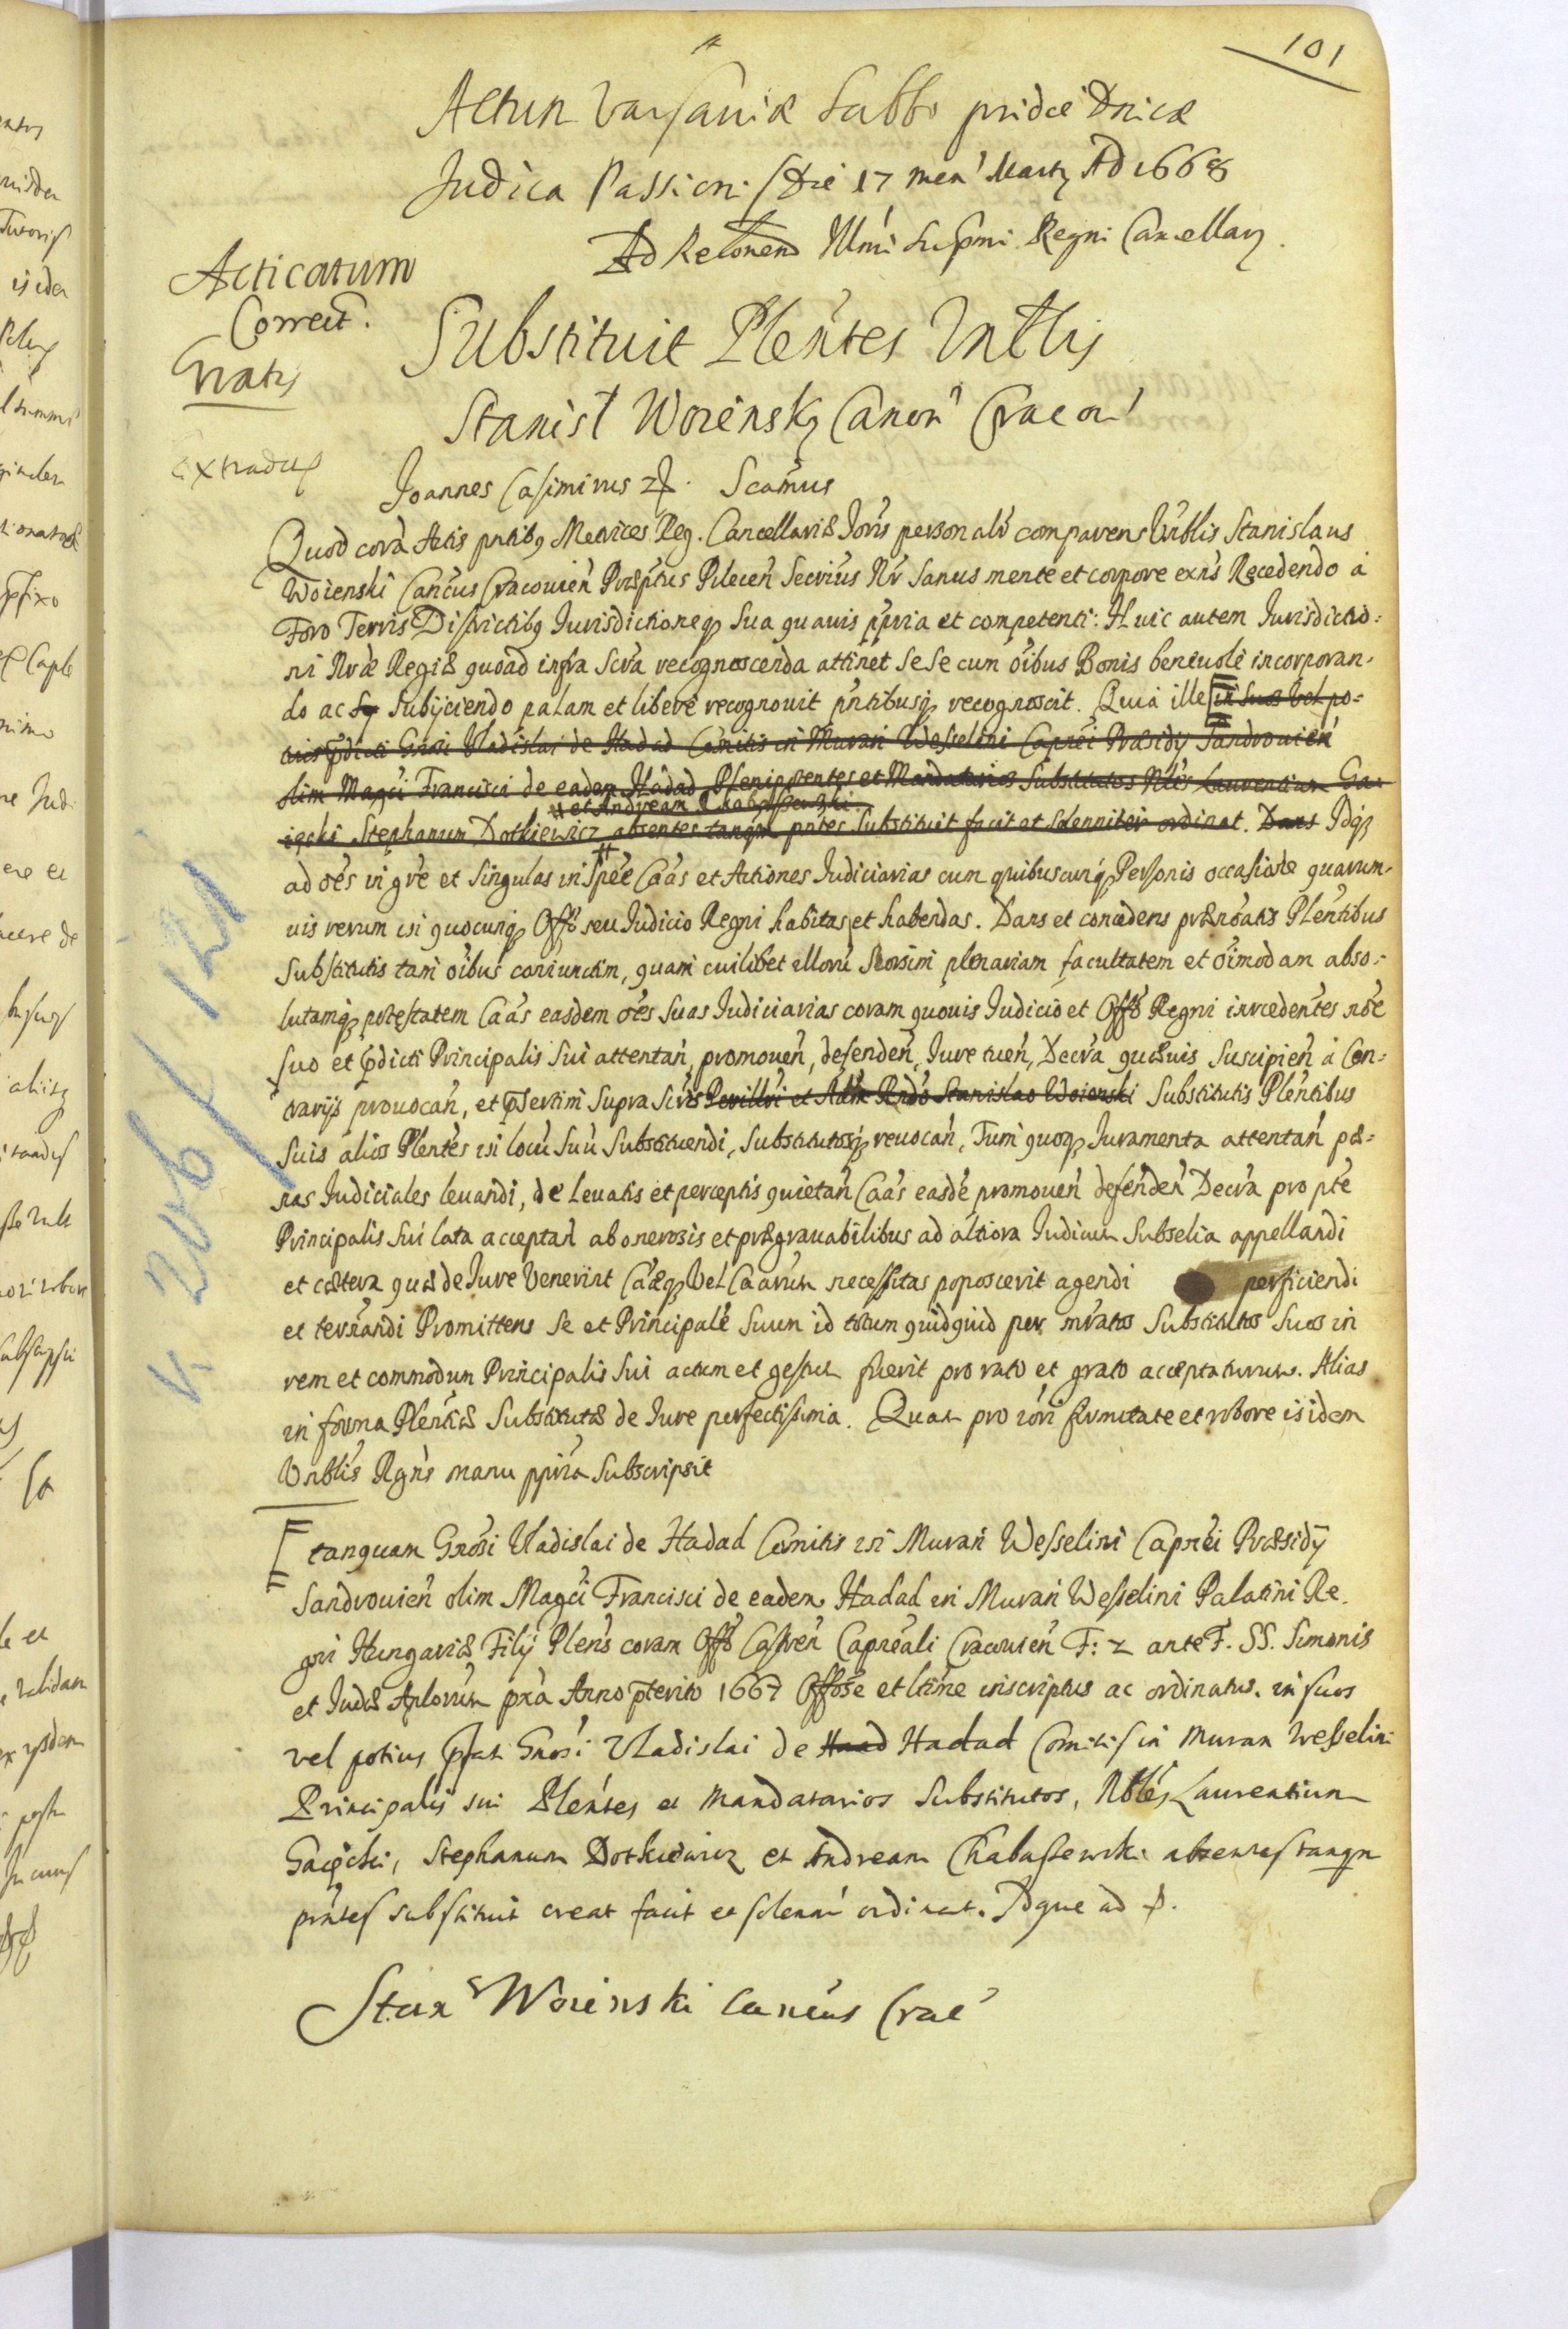 101
Actum Varsaviæ Sabbo pridie Dnicæ
Judica Passion: Die 17 men' Martÿ AD 1668
Ad Relonem Illmi Supmi Regni Cancellarÿ.
Acticatum
Correct.
Gratis
Extradit
Substituit Plentes Vnblis
Stanisl Woienskÿ Canon' Cracou'
Joannes Casimirus etc. Scamus
Quod corà Actis pntibq Metrices Reg. Cancellariæ Joris personalr comparens Vrblis Stanislaus
Woienski Cancus Cracouien Præptus Pilecen Secrius Nr Sanus mente et corpore exns Recedendo à
Foro Terris Districtibq Jurisdictioneq Sua quavis ppria et competenti: Huic autem Jurisdictio:
ni Nræ Regiæ quoad infra Scra recognoscenda attinet Sese cum oibus Bonis beneuolè incorporan-
do ac Sy Subijciendo palam et liberè recognouit pntibusq recognoscit. Quia ille in Suos Vel po=
tius pdicti Gnosi Vladislai de Hadad Comitis in Muran Wesselini Capnei Præsidÿ Sandrouien
olim Magci Francisci de eadem Hadad Plenipotentes et Mandatarios Substitutos Nbles Laurentium Ga-
et Andream Chabassewski
ięcki Stephanum Dotkiewicz absentes tanqm pntes Substituit facit et Solenniter ordinat. Dans Idq
ad oes in gre et Singulas in Spée Caas et Actiones Judiciarias cum quibuscunq Personis occasione quarum-
uis rerum in quocunq Offo seu Judicio Regni habitas et habendas. Dans et concedens prænoatis Plentibus
Substitutis tam oibus coniunctim, quam cuilibet illorù Seorsim plenariam facultatem et oimodam abso-
lutamq potestatem Caas easdem oes Suas Judiciarias coram quouis Judicio et Offo Regni intcedentes noe
suo et pdicti Principalis Sui attentan, promouen, defenden, Jure tuen, Decra quæuis Suscipien à Con-
trarijs prouocan, et psertim Supra Scris Perillri et Adm Rndo Stanislao Woienski Substitutis Plentibus
Suis alios Plentes in locù Suù Substituendi, Substitutosq reuocan, Tum quoq Juramenta attentan pæ=
nas Judiciales leuandi, de leuatis et perceptis quietan Caas easdé promouen defenden Decra pro pte
Principalis Sui lata acceptan ab onerosis et prægrauabilibus ad altiora Judicum Subselia appellandi
et cætera quæ de Jure Venerint Caæq Vel Caarum necessitas poposcerit agendi perficiendi
et terminandi Promittens Se et Principalé Suum id totum quidquid per mratos Substitutos Suos in
rem et commodum Principalis Sui actum et gestum fuerit pro rato et grato acceptaturum. Alias
in forma Plentiæ Substitutæ de Jure perfectissima. Quam pro iori firmitate et robore isidem
Vrblis Rgns manu ppria Subscripsit
tanquam Gnosi Vladislai de Hadad Comitis in Muran Wesselini Capnei Præsidÿ
Sandrouien olim Magci Francisci de eadem Hadad in Muran Wesselini Palatini Re-
gni Hungariæ Filÿ Plens coram Offo Castren Capneali Cracouien F: 2 ante F. SS. Simonis
et Judæ Aplorum pxa Anno pterito 1667 Offose et ltime inscriptus ac ordinatus. in suos
vel potius pfati Gnosi Vladislai de Haad Hadad Comitis in Muran Wesselini
Principalis sui Plentes et Mandatarios Substitutos, Nbles Laurentium
Gaięcki, Stephanum Dotkiewicz et Andream Chabassewski absentes tanqm
pntes substituit creat facit et solenni ordinat. Idque ad etc.
Stan Woienski Cancus Crac'